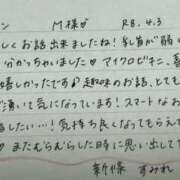 ン M様♡ R8.4.3
しくお話出来ましたね!乳首が弱
分かっちゃいました♡マイクロビキニ、喜
嬉しかったです♪趣味のお話、とても
頂いて気になっています!スマートなお
したい…!気持ち良くなってもらえ
♡またむらむらした時に思い出して
新條 すみれ